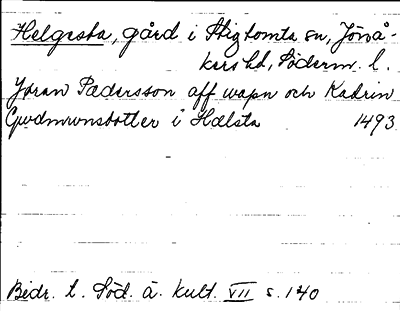 Helgesta, gård i Stigtomta sn, Jönå-
kers hd, Söderm. l.
Jöran Pædersson aff wapn och Kadrin
Gwdmwnsdotter i Hælsta 1493
Bidr. t. Söd. ä. kult. VII s. 140